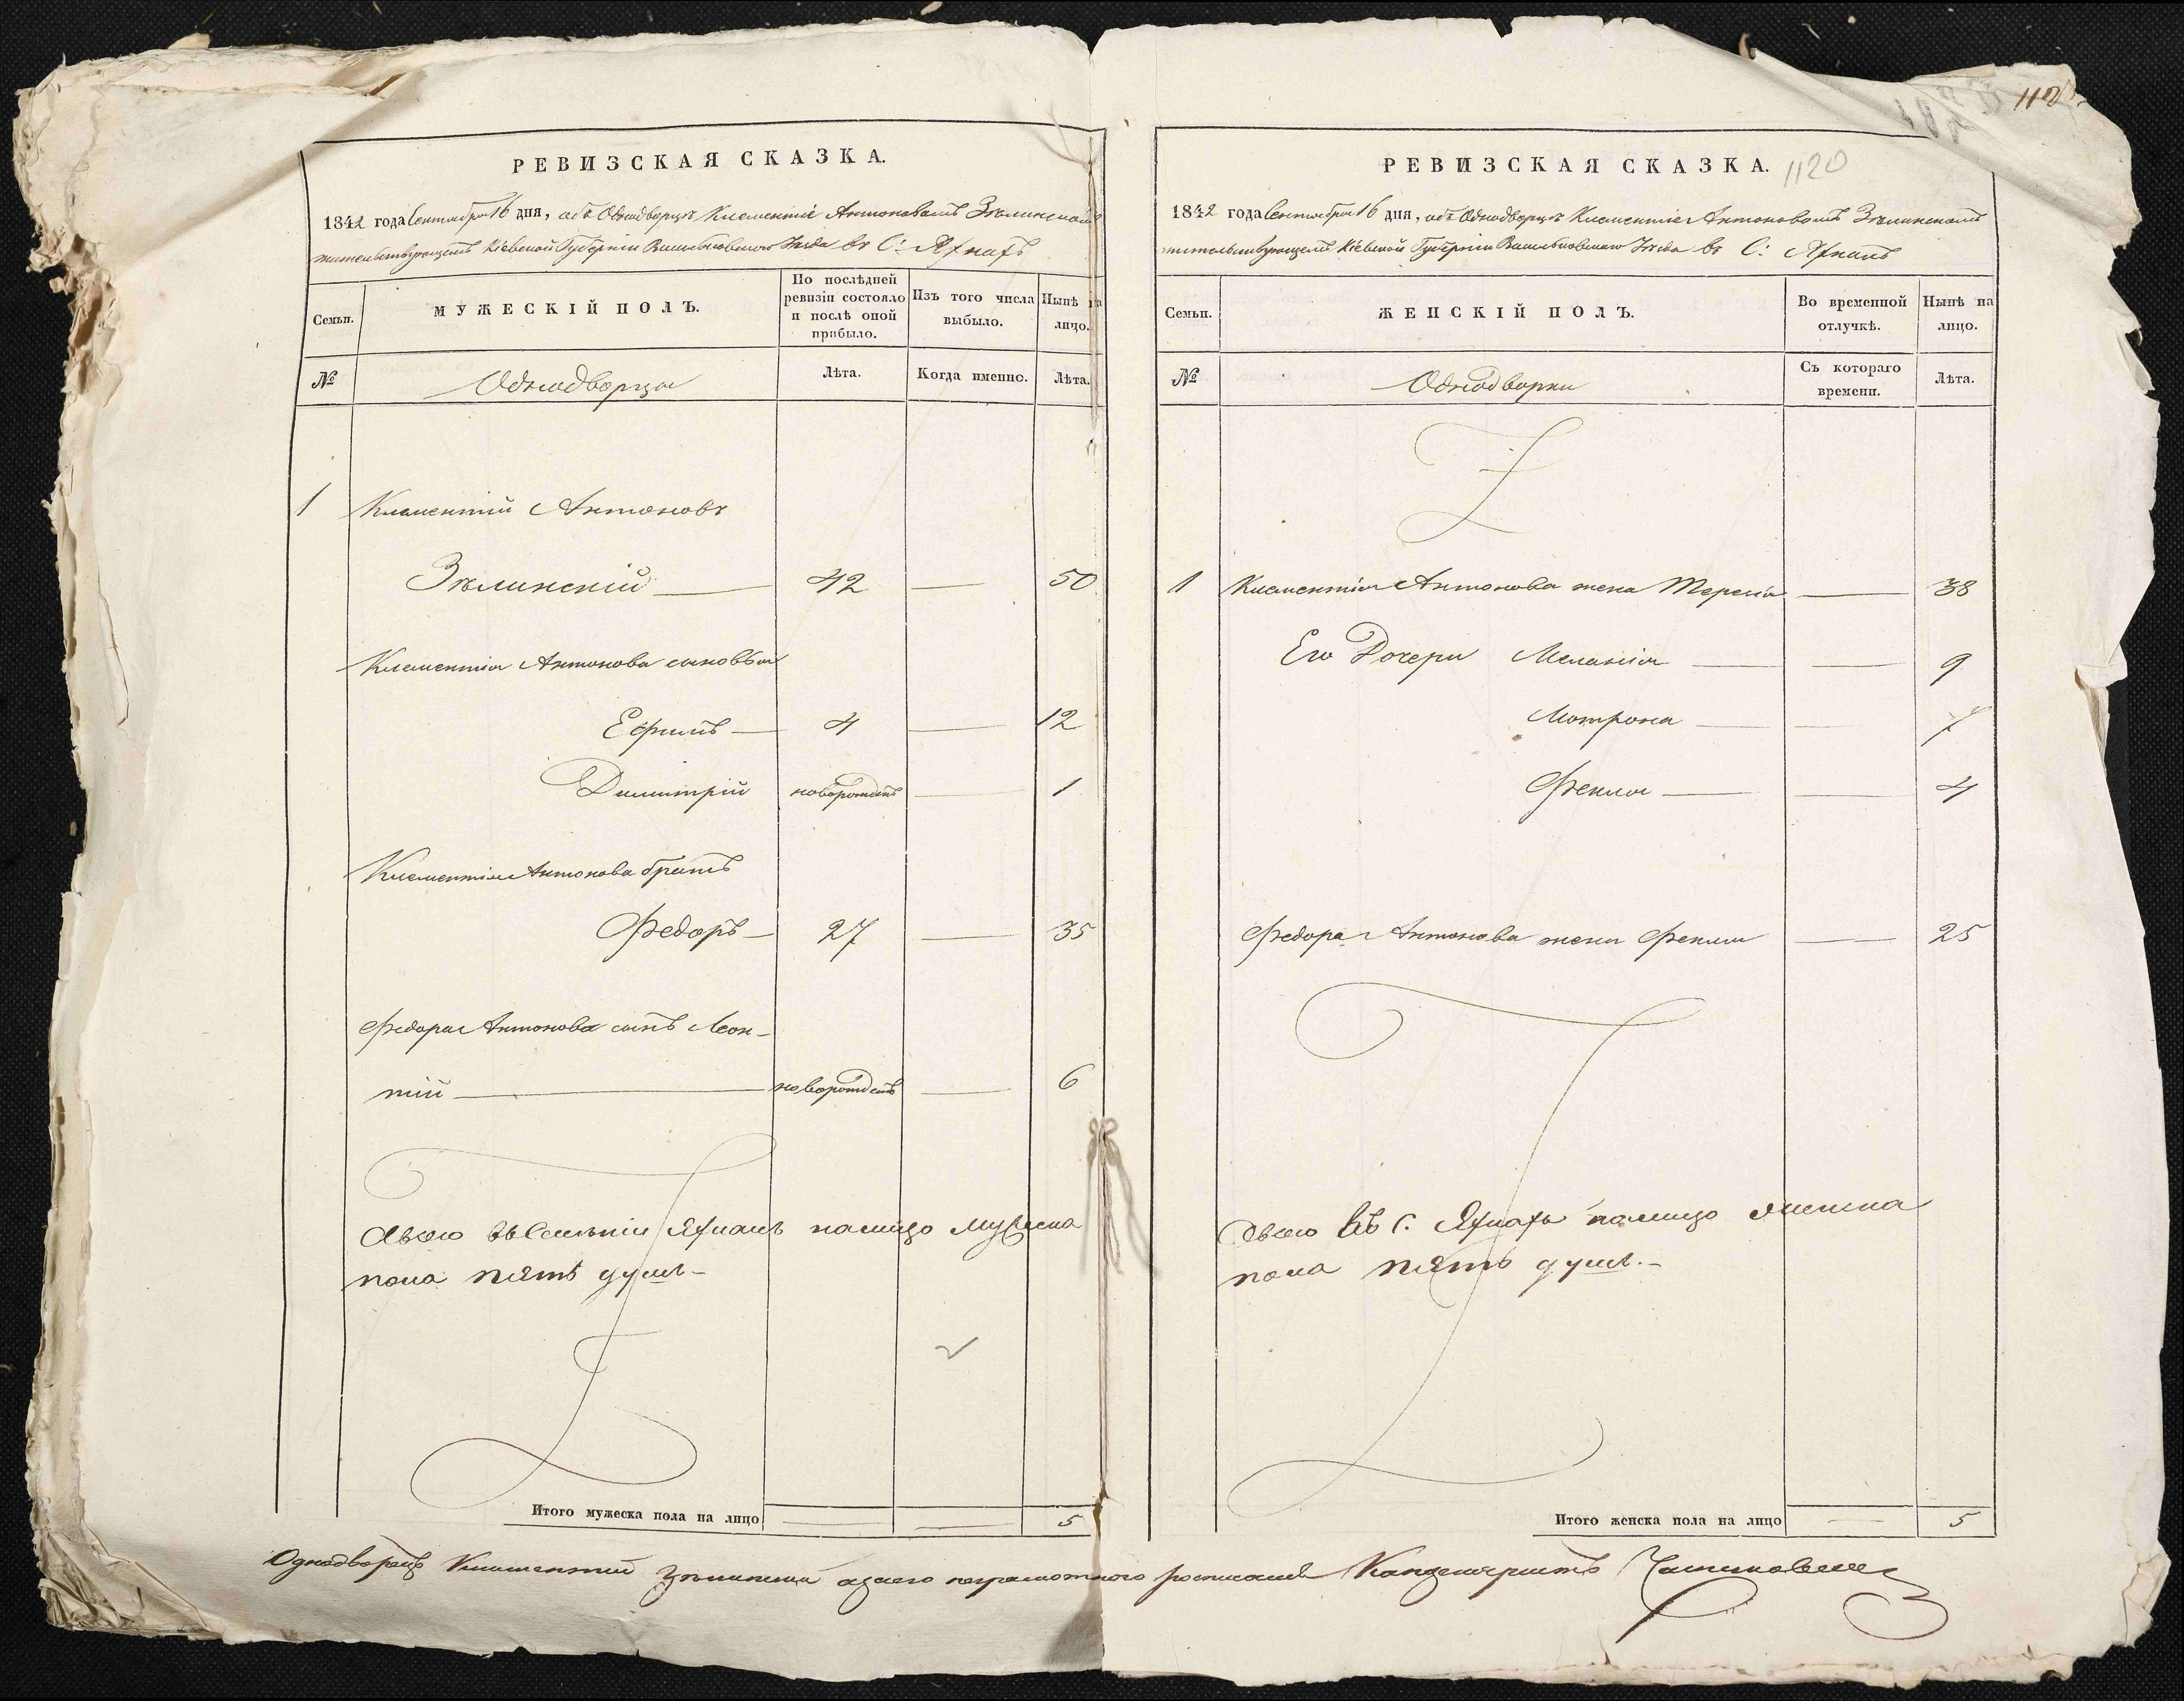 РЕВИЗСКАЯ СКАЗКА.
1842 года Сентября 16 дня, объ Однодворцѣ Клементіе Антоновомъ Зѣлинскомъ
жительствующемъ Кіевской Губерніи Васильковского Уѣзда въ С: Яхнахъ
Семьи.
МУЖЕСКІЙ ПОЛЪ.
По послѣдней ревизіи состояло и послѣ оной прибыло.
Изъ того числа выбыло.
Нынѣ на лицо.
№
Однодворцы
Лѣта.
Когда именно.
Лѣта.
1 Клементій Антоновъ
Зѣлинскій — 42 — 50
Клементія Антонова сыновья
Ефимъ — 4 — 12
Димитрій новорожденъ — 1
Клементія Антонова братъ
Федоръ — 27 — 35
Федора Антонова сынъ Леон-
тій — новорожденъ — 6
въ Селеніи Яхнахъ налицо мужеска
пола пять душъ. —
Итого мужеска пола на лицо — — 5
112
1120
РЕВИЗСКАЯ СКАЗКА.
1842 года Сентября 16 дня, объ Однодворцѣ Клементіе Антоновомъ Зѣлинскомъ
жительствующемъ Кіевской Губерніи Васильковского Уѣзда въ С: Яхнахъ
Семьи.
ЖЕНСКІЙ ПОЛЪ.
Во временной отлучкѣ.
Нынѣ на лицо.
№
Однодворки
Съ котораго времени.
Лѣта.
1 Клементія Антонова жена Тересія — 38
Его Дочери Меланія — — 9
Мотрона — — 7
Фекла — — 4
Федора Антонова жена Фекла — 25
въ С. Яхнахъ налицо женска
пола пять душъ. —
Итого женска пола на лицо — 5
Однодворецъ Клементий Зѣлинский а за его неграмотного росписался Канцеляристъ